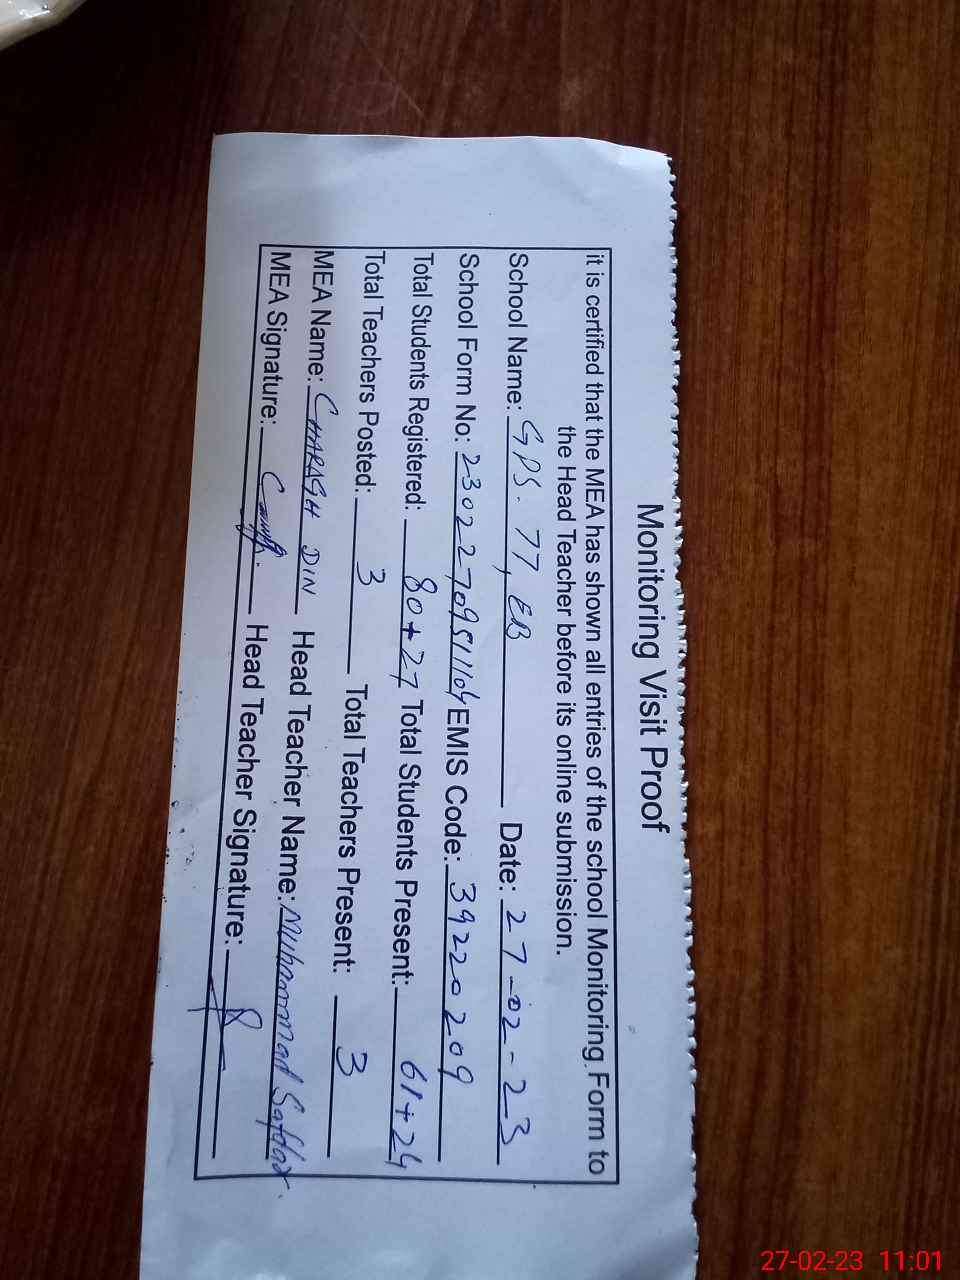 Monitoring Visit Proof
it is certified that the MEA has shown all entries of the school Monitoring Form to
the Head Teacher before its online submission.
School Name: GPS. 77, EB Date: 27-02-23
School Form No: 23022709511104 EMIS Code: 39220209
Total Students Registered: 80+27 Total Students Present: 61+24
Total Teachers Posted: 3 Total Teachers Present: 3
MEA Name: CHARAGH DIN Head Teacher Name: Muhammad Safdar.
MEA Signature: Head Teacher Signature:
27-02-23 11:01